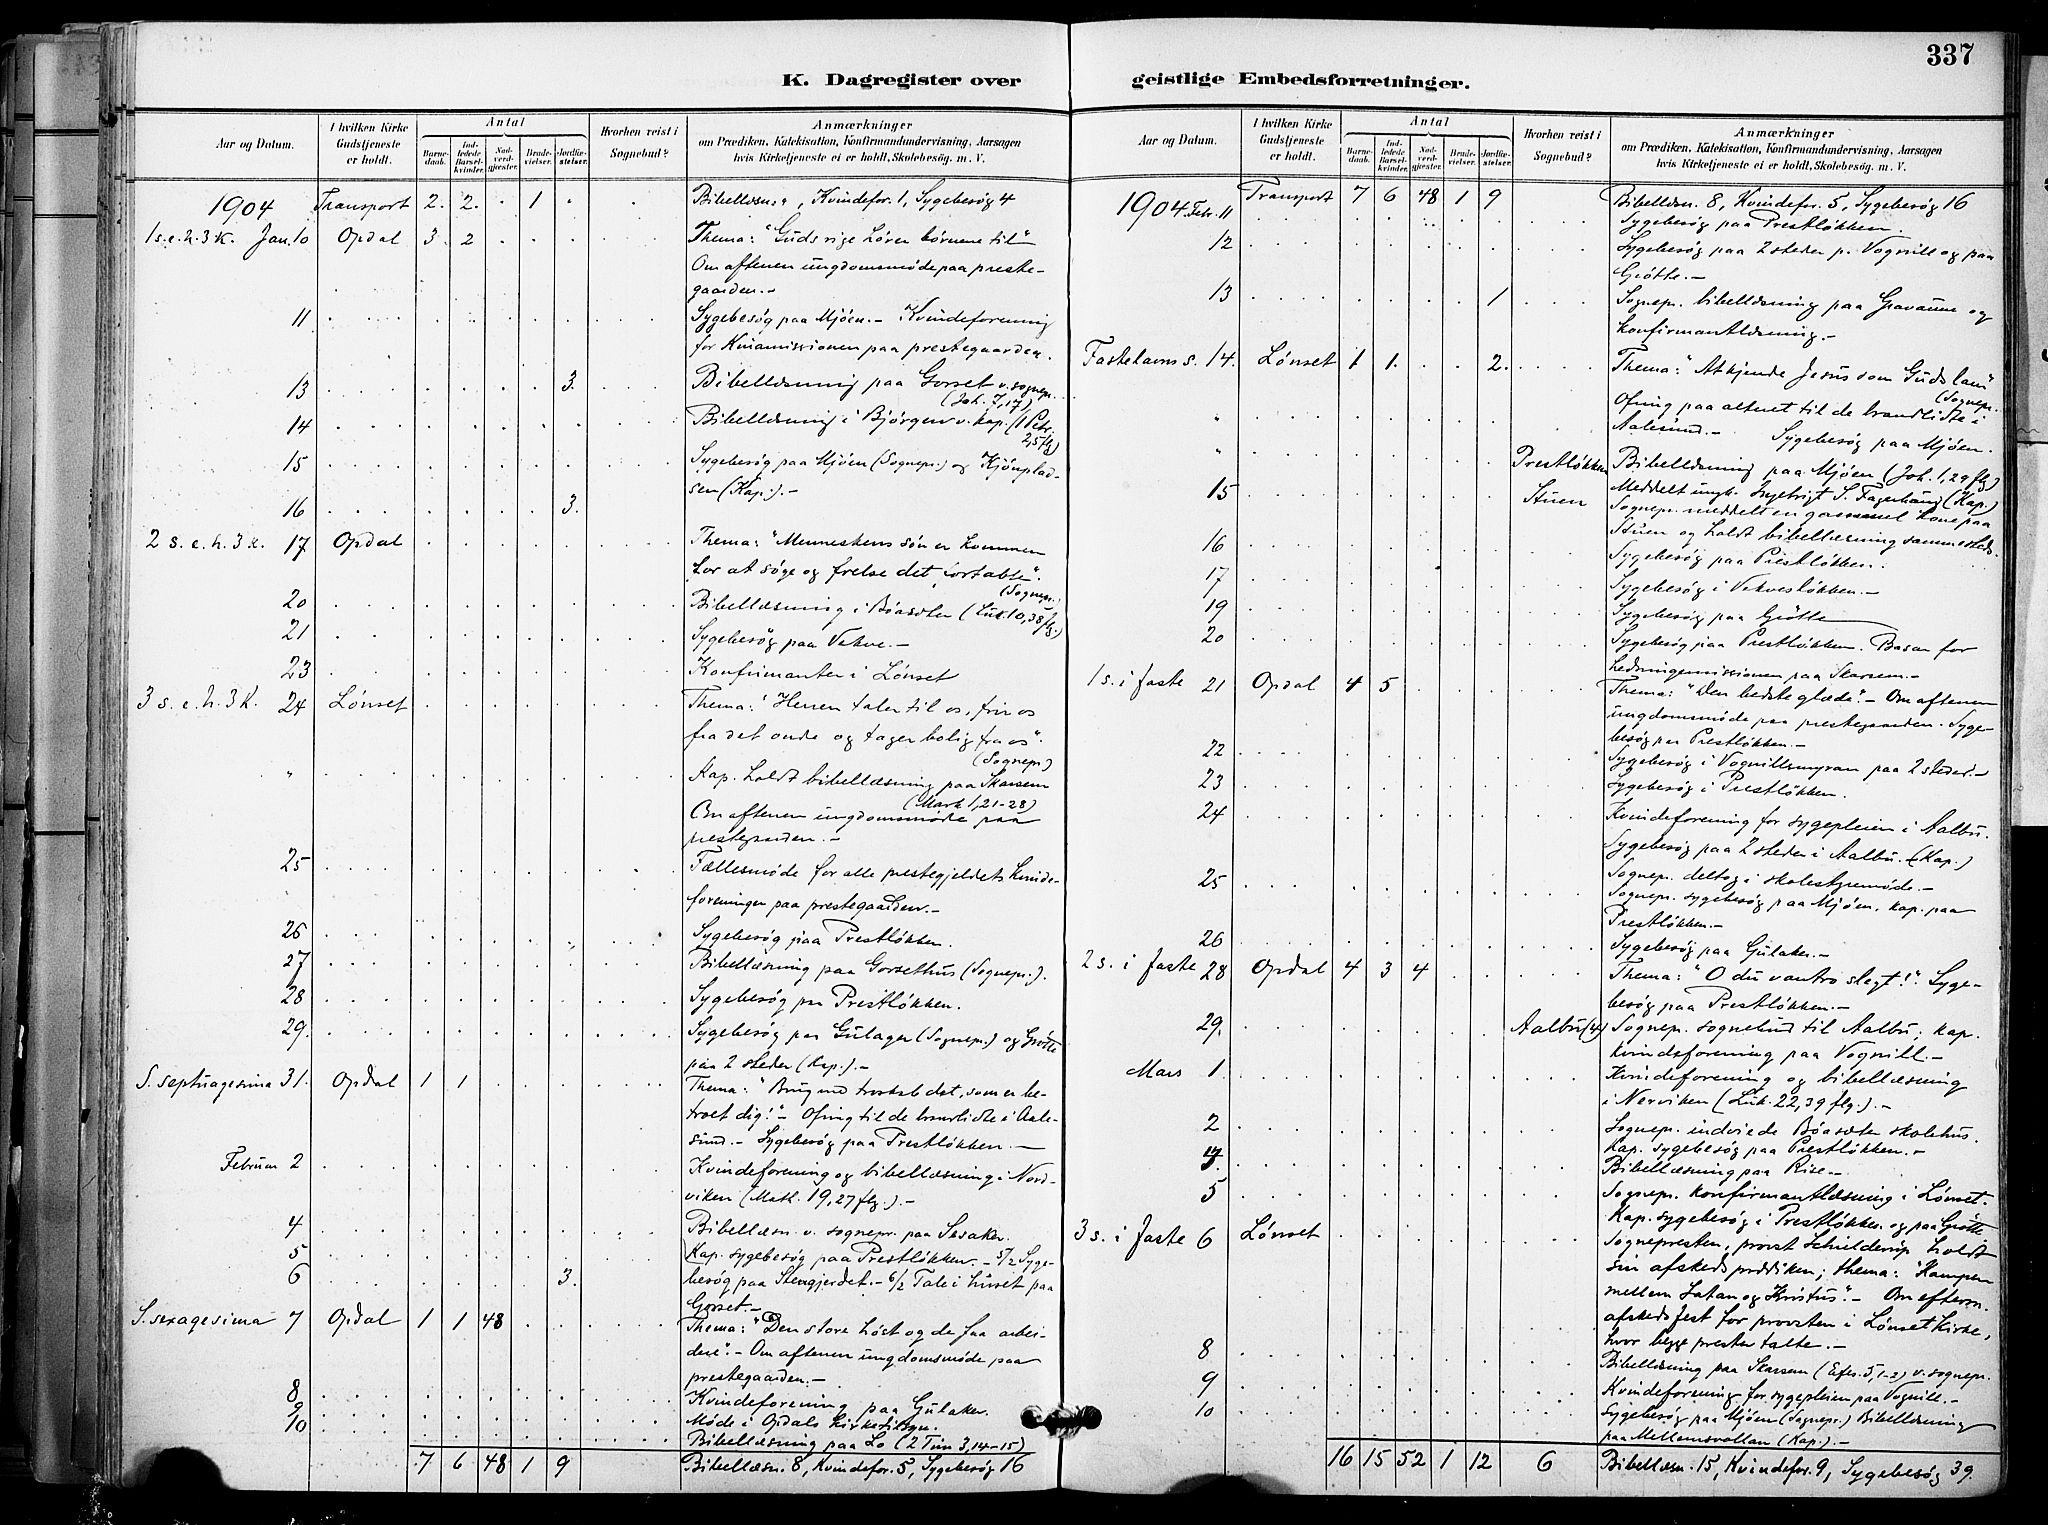 337
K. Dagregister over geistlige Embedsforretninger.
Aar og Datum.
I hvilken Kirke Gudstjeneste er holdt.
Antal
Barne-daab.
Ind-ledede Barsel-kvinder.
Nad-verd-gjæster.
Brude-vielser.
Jordfæ-stelser.
Hvorhen reist i Sognebud?
Anmærkninger
om Prædiken, Katekisation, Konfirmandundervisning, Aarsagen
hvis Kirketjeneste ei er holdt, Skolebesøg. m. V.
1904 Transport 2. 2. 1 Bibellæsn. „, Kvindefor. 1, Sygebesøg 4
1 s. e. h. 3 k. Jan. 10 Opdal 3 2 Thema: "Guds rige hører børnene til"
Om aftenen ungdomsmøde paa preste-
gaarden.-
11 Sygebesøg paa Mjøen.- Kvindeforening
for Kinamissionen paa prestegaarden.
13 3. Bibellæsning paa Gorset v. sognepr.
(Joh. 7,17)
14 Bibellæsning i Bjørgen v. kap. (1 Petr.
2,5 flg)
15 Sygebesøg paa Mjøen (Sognepr.) og Kjönplad-
sen (Kap.).-
16 3.
2 s. e. h. 3 k. 17 Opdal Thema: "Menneskens søn er kommen
for at søge og frelse det fortabte".
(Sognepr.)
20 Bibellæsning i Böasæter (Luk. 10,38 flg.)
21 Sygebesøg paa Vekve.-
23 Konfirmanter i Lönset
3 s. e. h. 3 k. 24 Lönset Thema: "Herren taler til os, frir os
fra det onde og tager bolig fra os".
(Sognepr)
" Kap. holdt bibellæsning paa Skarsem
(Mark 1,21-28)
Om aftenen ungdomsmøde paa
prestegaarden.-
25 Fællesmøde for alle prestegjeldets kvinde-
foreninger paa prestegaarden.-
26 Sygebesøg paa Prestløkken.
27 Bibellæsning paa Gorsethus (Sognepr.).
28 Sygebesøg paa Prestløkken.
29. Sygebesøg paa Gulager (Sognepr.) og Grøtte
paa 2 steder (Kap.).-
S. septuagesima 31. Opdal 1 1 Thema: "Brug med troskab det, som er be-
troet dig!"- Ofring til de brandlidte i Aale-
sund.- Sygebesøg paa Prestløkken.-
Februar 2 Kvindeforening og bibellæsning i Nord-
viken (Math. 19,27 flg.).-
4 Bibellæsn. v. sognepr. paa Sesaker.
5 Kap. sygebesøg paa Prestløkken.- 5/2 Syge-
6 3. besøg paa Stengjerdet.- 6/2 Tale i huset paa
Gorset.-
S. sexagesima 7 Opdal 1 1 48 Thema: "Den store høst og de faa arbei-
dere".- Om aftenen ungdomsmøde paa
prestegaarden.-
8 Kvindeforening paa Gulaker.
9 Møde i Opdals kirketilsyn.
10 Bibellæsning paa Lo (2 Tim 3,14-15)
7 6 48 1 9 Bibellæsn. 8, Kvindefor. 5, Sygebesøg 16
Aar og Datum.
I hvilken Kirke Gudstjeneste er holdt.
Antal
Barne-daab.
Ind-ledede Barsel-kvinder.
Nad-verd-gjæster.
Brude-vielser.
Jordfæ-stelser.
Hvorhen reist i Sognebud?
Anmærkninger
om Prædiken, Katekisation, Konfirmandundervisning, Aarsagen
hvis Kirketjeneste ei er holdt, Skolebesøg. m. V.
1904 Transport 7 6 48 1 9 Bibellæsn. 8, Kvindefor. 5, Sygebesøg 16
Febr. 11 Sygebesøg paa Prestløkken.
12 Sygebesøg paa 2 steder p. Vognill og paa
Grötte.-
13 1 Sognep. bibellæsning paa Gravaune og
konfirmantlæsning.-
Fastelavns s. 14. Lönset 1 1. 2. Thema: "At kjende Jesus som Guds lam"
(Sognepr.
Ofring paa alteret til de brandlidte i
Aalesund.- Sygebesøg paa Mjöen.
" Prestløkken Bibellæsning paa Mjöen (Joh. 1,29 flg)
15 Stuen Meddelt ungk. Ingebrigt S. Fagerhaug (Kap.)
Sognepr. meddelt en gammel kone paa
16 Stuen og holdt bibellæsning sammesteds.
Sygebesøg paa Prestløkken.
17 Sygebesøg i Vekvesløkken.-
19 Sygebesøg paa Grötte
20 Sygebesøg paa Prestløkken. Basar for
hedningemissionen paa Skarsem.-
1 s. i faste 21 Opdal 4 5 Thema: "Den bedste glæde".- Om aftenen
ungdomsmøde paa prestegaarden. Syge-
besøg paa Prestløkken.-
22 Sygebesøg i Vognillsmyran paa 2 steder.-
23 Sygebesøg i Prestløkken.
24 Kvindeforening for sygepleien i Aalbu.
Sygebesøg paa 2 steder i Aalbu. (Kap.)
25 Sognepr. deltog i skolestyremøde.-
Sognepr. sygebesøg paa Mjöen, kap. paa
Prestløkken.-
26 Sygebesøg paa Gulaker.-
2 s. i faste 28 Opdal 4 3 4 Thema: "O du vantro slegt!". Syge-
besøg paa Prestløkken.-
29. Aalbu (4) Sognepr. sognebud til Aalbu; kap.
kvindeforening paa Vognill.-
Mars 1. Kvindeforening og bibellæsning
i Nerviken (Luk. 22,39 flg.).-
2 Sognepr. indviede Böasæter skolehus.
Kap. sygebesøg paa Prestløkken.-
Bibellæsning paa Rise.-
5 Sognepr. konfirmantlæsning i Lönset.
Kap. sygebesøg i Prestløkken og paa Grötte
3 s. i faste 6 Lönset Sognepresten, provst Schielderup holdt
sin afskedsprædiken; thema: "Kampen
mellem Satan og Kristus".- Om efterm.
afskedsfest for provsten i Lönset kirke,
hvor begge prester talte.-
8 Bibellæsning paa Skarsem (Efes. 5,1-2) v. sognepr.
9 Kvindeforening for sygepleien paa Vognill.-
10 Sygebesøg paa Mjöen (Sognepr.) Bibellæsning
paa Mellemsvollan (Kap.).-
16 15 52 1 12 6 Bibellæsn. 15, Kvindefor. 9, Sygebesøg 39.